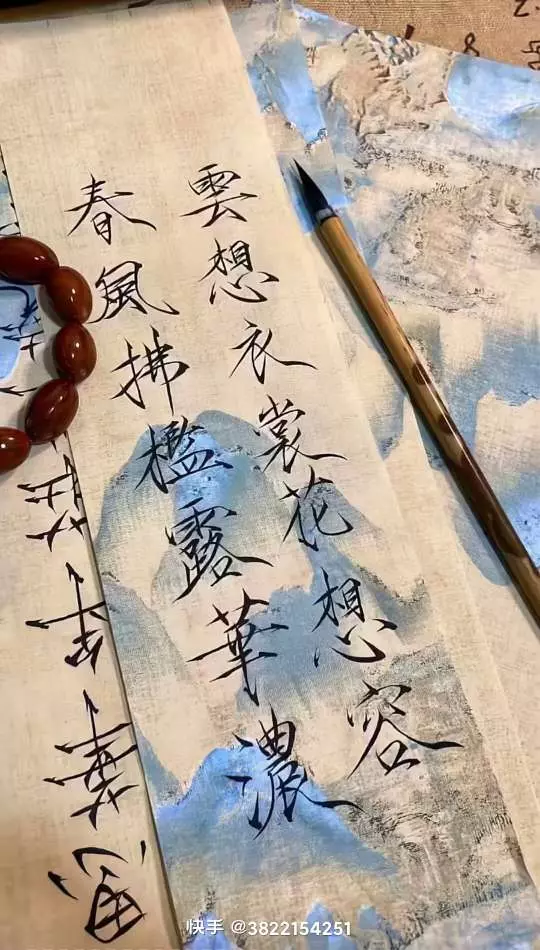 雲想衣裳花想容
春風拂檻露華濃
快手 @3822154251